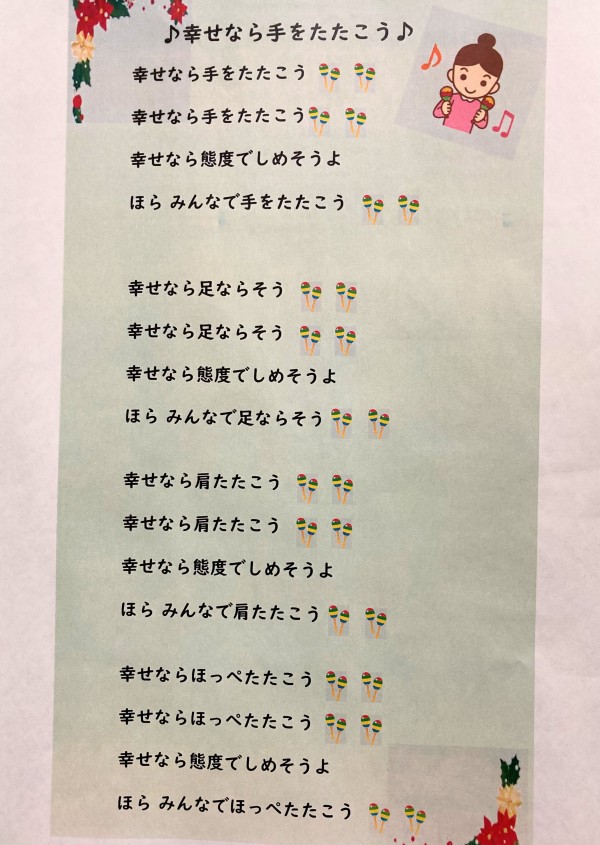 ♪幸せなら手をたたこう♪
幸せなら手をたたこう
幸せなら手をたたこう
幸せなら態度でしめそうよ
ほら みんなで手をたたこう
幸せなら足ならそう
幸せなら足ならそう
幸せなら態度でしめそうよ
ほら みんなで足ならそう
幸せなら肩たたこう
幸せなら肩たたこう
幸せなら態度でしめそうよ
ほら みんなで肩たたこう
幸せならほっぺたたこう
幸せならほっぺたたこう
幸せなら態度でしめそうよ
ほら みんなでほっぺたたこう